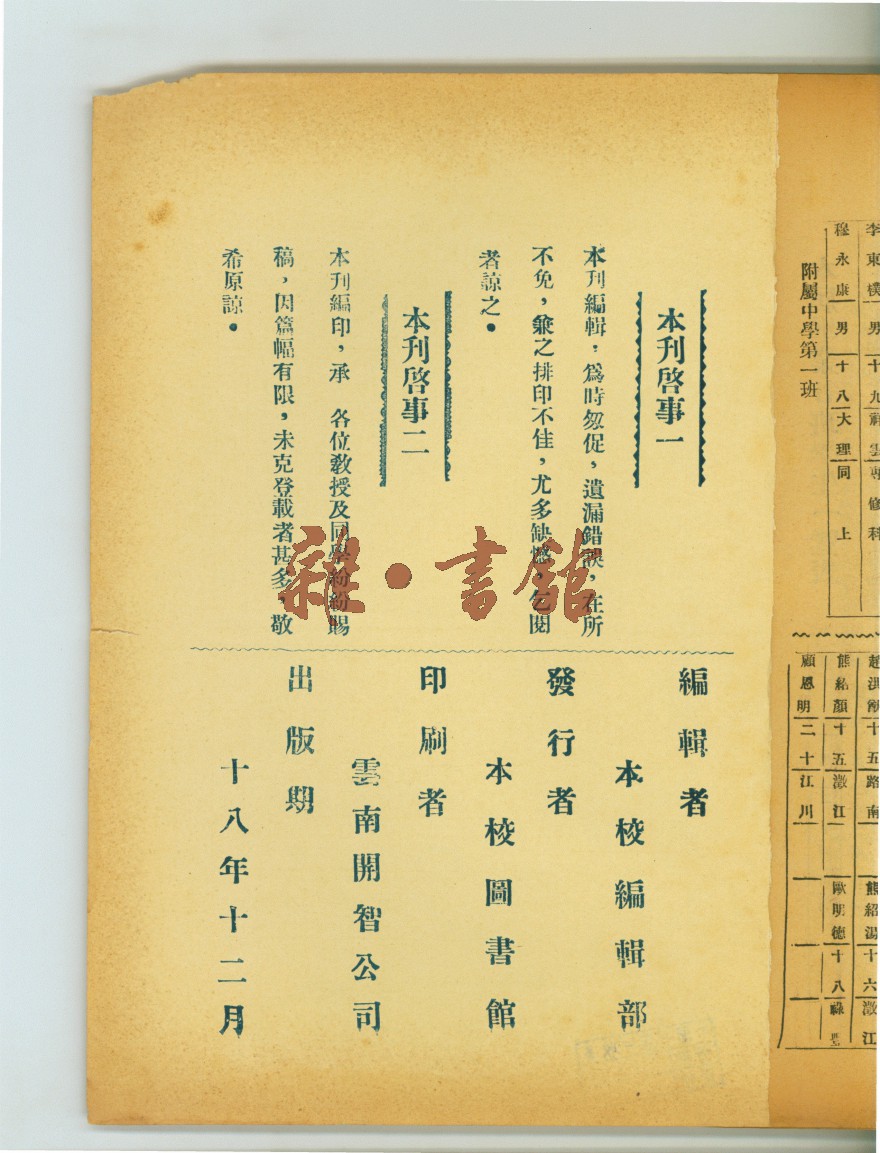 李東樸 男 十九 祥雲 專修科
穆永康 男 十八 大理 同上
附屬中學第一班
十五 路南
熊紹顏 十五 澂江
顧恩明 二十 江川
熊紹湯 十六 澂江
歐明德 十八
本刊啓事一
本刊編輯，爲時匆促，遺漏錯誤，在所
不免，兼之排印不佳，尤多缺憾，乞閱
者諒之。
本刊啓事二
本刊編印，承　各位教授及同學紛紛賜
稿，因篇幅有限，未克登載者甚多，敬
希原諒。
編輯者
本校編輯部
發行者
本校圖書館
印刷者
雲南開智公司
出版期
十八年十二月
雜·書館